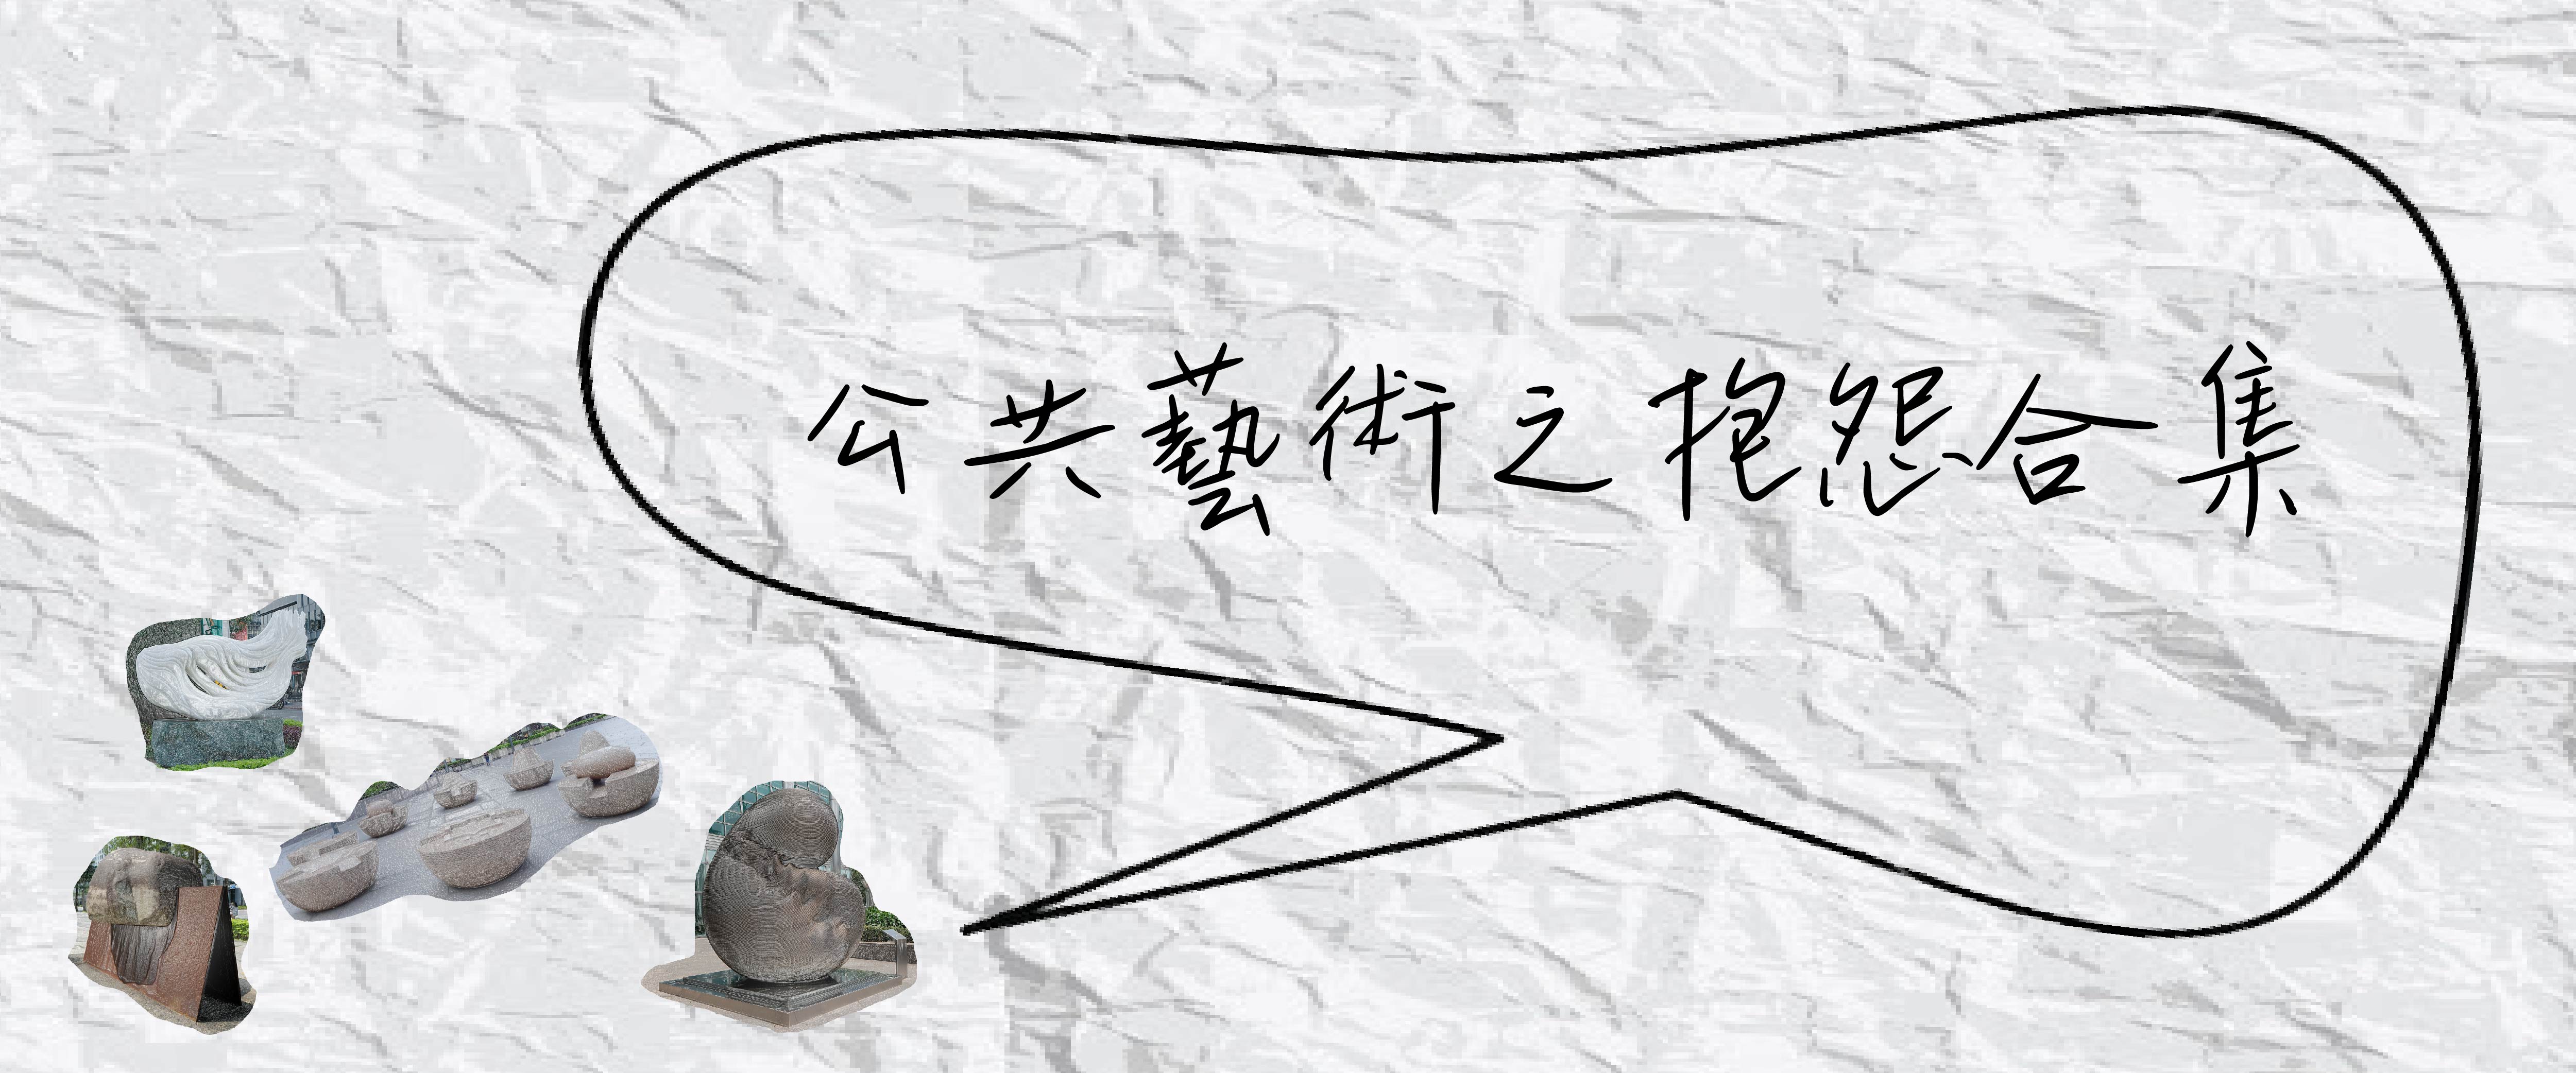 公共藝術之抱怨合集